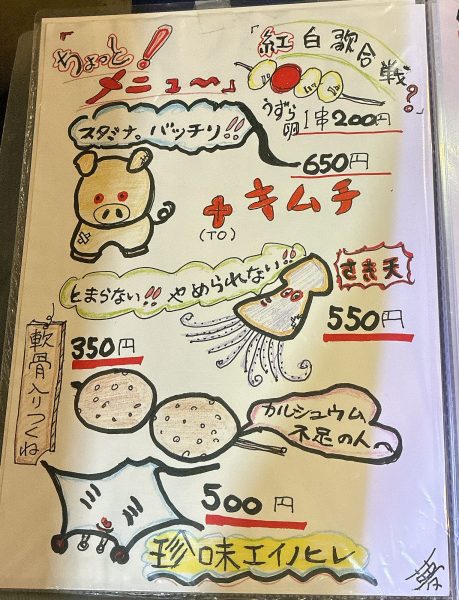 『めちょっと!
メニュ〜』
『紅白歌合戦?
うずら卵 1串200円
スタミナ。バッチリ!!
650円
+キムチ
(TO)
とまらない!! やめられない!!
さき天
550円
軟骨入りつくね
350円
カルシュウム
不足の人へ
500円
珍味エイノヒレ